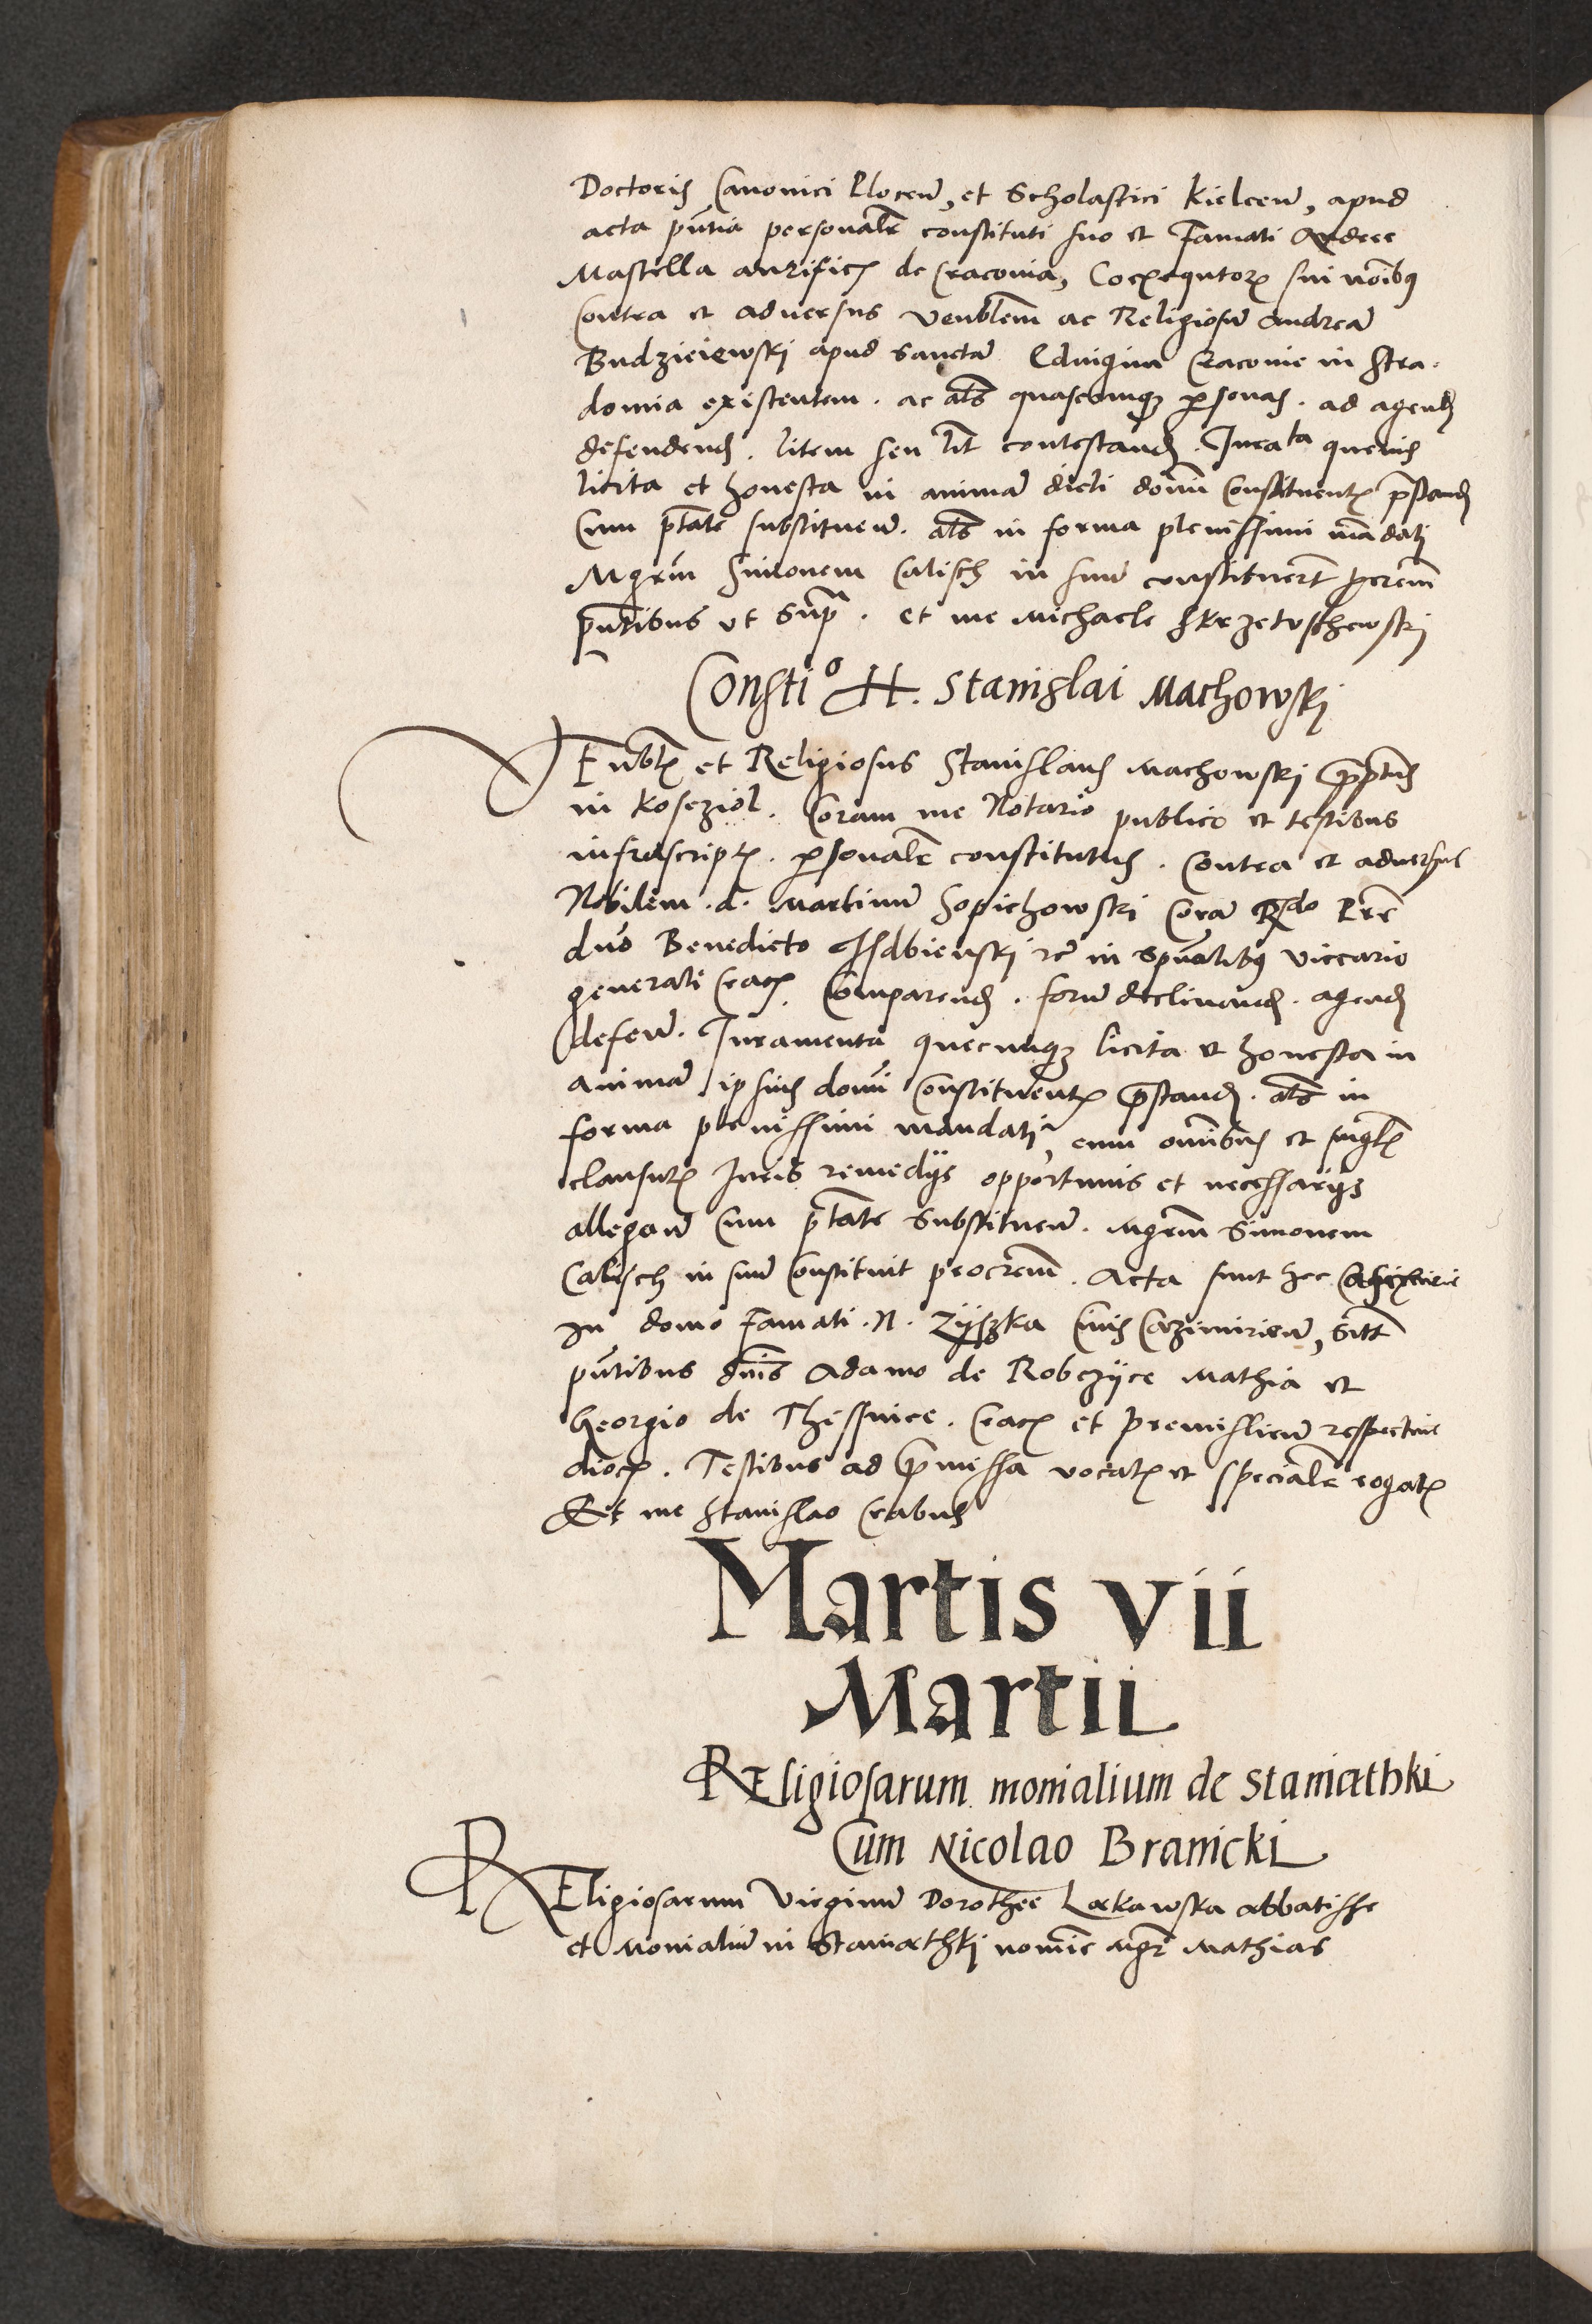 Doctoris Canonici Plocen̄, et Scholastici Kielcen̄, apud
acta pn̄tia personalr̄ constituti suo et Famati Andree
Mastella aurificȝ de Cracovia, Coexequtorȝ sui noībꝫ
Contra et adversus Venblem̄ ac Religiosū Andreā
Budzieiewski apud Sanctā Edvigim Cracovie in Stra-
domia existentem. ac als̄ quascumqꝫ ꝑsonas. ad agendȝ
defendendȝ. litem seu lit̄ contestandȝ. Iurata quevis
licita et honesta in animā dicti domī Constituentȝ p̄standȝ
Cum ptāte substituen̄. als̄ in forma plenissimi mādati
Mgrūm Simonem Calisch in suū constituert̄ ꝓcrem̄
pn̄tibus ut Supᵃ. et me Michaele Skrzetuschewski
Constiᵒ H. Stanislai Machowski
VEnblȝ et Religiosus Stanislaus Machowski p̄ptus
in Koscziol. Coram me Notario publico et testibus
infrascriptȝ. ꝑsonalr̄ constitutus. Contra et adversus
Nobilem .d. Martinum Sopichowski Corā Rᵈᵒ Pr̄e
dn̄o Benedicto Isdbienski zc̄ in Spūalibꝫ viccario
generali Cracȝ. Comparendȝ. forū declinandȝ. agendȝ
defen̄. Iuramenta quecumqꝫ licita et honesta in
animā ipsius domī Constituentȝ p̄standȝ. als̄ in
forma plenissimi mandati, cum omībus et singlȝ
clausulȝ Iuris remedijs opportunis et necessarijs
allegan̄ Cum ptāte Substituen̄. Mgrem̄ Simonem
Calisch in suū Constituit procrem̄. Acta sunt hec
In domo Famati .N. Zyszka Civis Cazimirien̄, Sitt̄
pn̄tibus dn̄is Adamo de Robczyce Mathia et
Georgio de Thissnice. Cracȝ et Premislien̄ respective
diocȝ. Testibus ad p̄missa vocatȝ et specialr̄ rogatȝ
Et me Stanislao Crabus
Martis VII
Martii
REligiosarum monialium de Staniathki
Cum Nicolao Branicki
REligiosarum Virginū Dorothee Lækawska abbatisse
et Monialiū in Staniæthki nomīe Mgr̄ Mathias